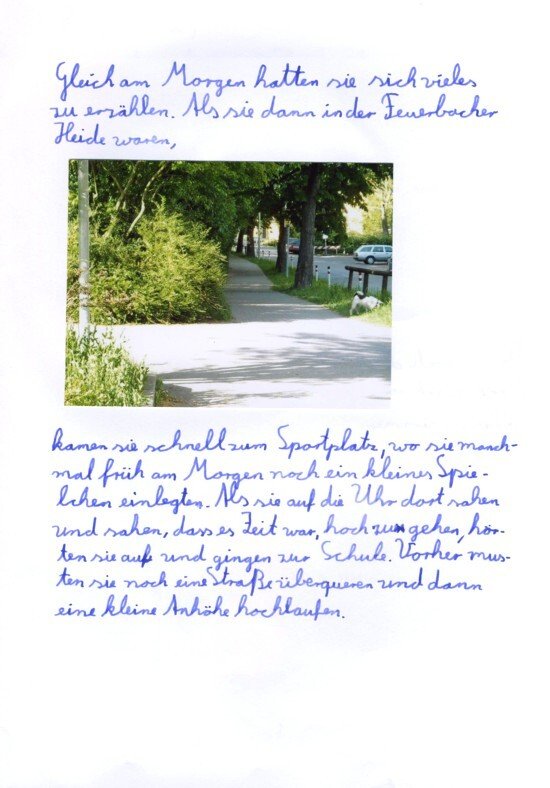 Gleich am Morgen hatten sie sich vieles
zu erzählen. Als sie dann in der Feuerbacher
Heide waren,
kamen sie schnell zum Sportplatz, wo sie manch-
mal früh am Morgen noch ein kleines Spie-
lchen einlegten. Als sie auf die Uhr dort sahen
und sahen, dass es Zeit war, hoch zu gehen, hör-
ten sie auf und gingen zur Schule. Vorher mus-
ten sie noch eine Straße überqueren und dann
eine kleine Anhöhe hochlaufen.